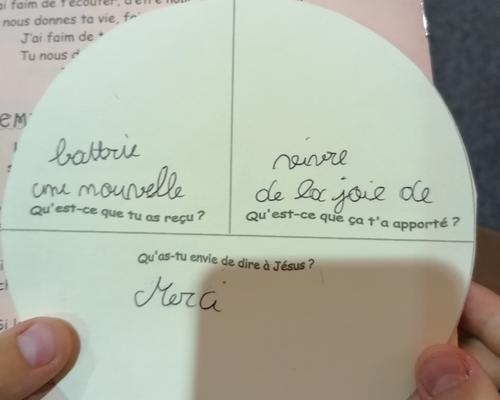 ai faim de t'écouter, d'être
nous donnes ta vie,
J'ai faim de
Tu nous d
battrie
une nouvelle
Qu'est-ce que tu as reçu ?
reivre
de la joie de
Qu'est-ce que ça t'a apporté ?
Qu'as-tu envie de dire à Jésus ?
Merci